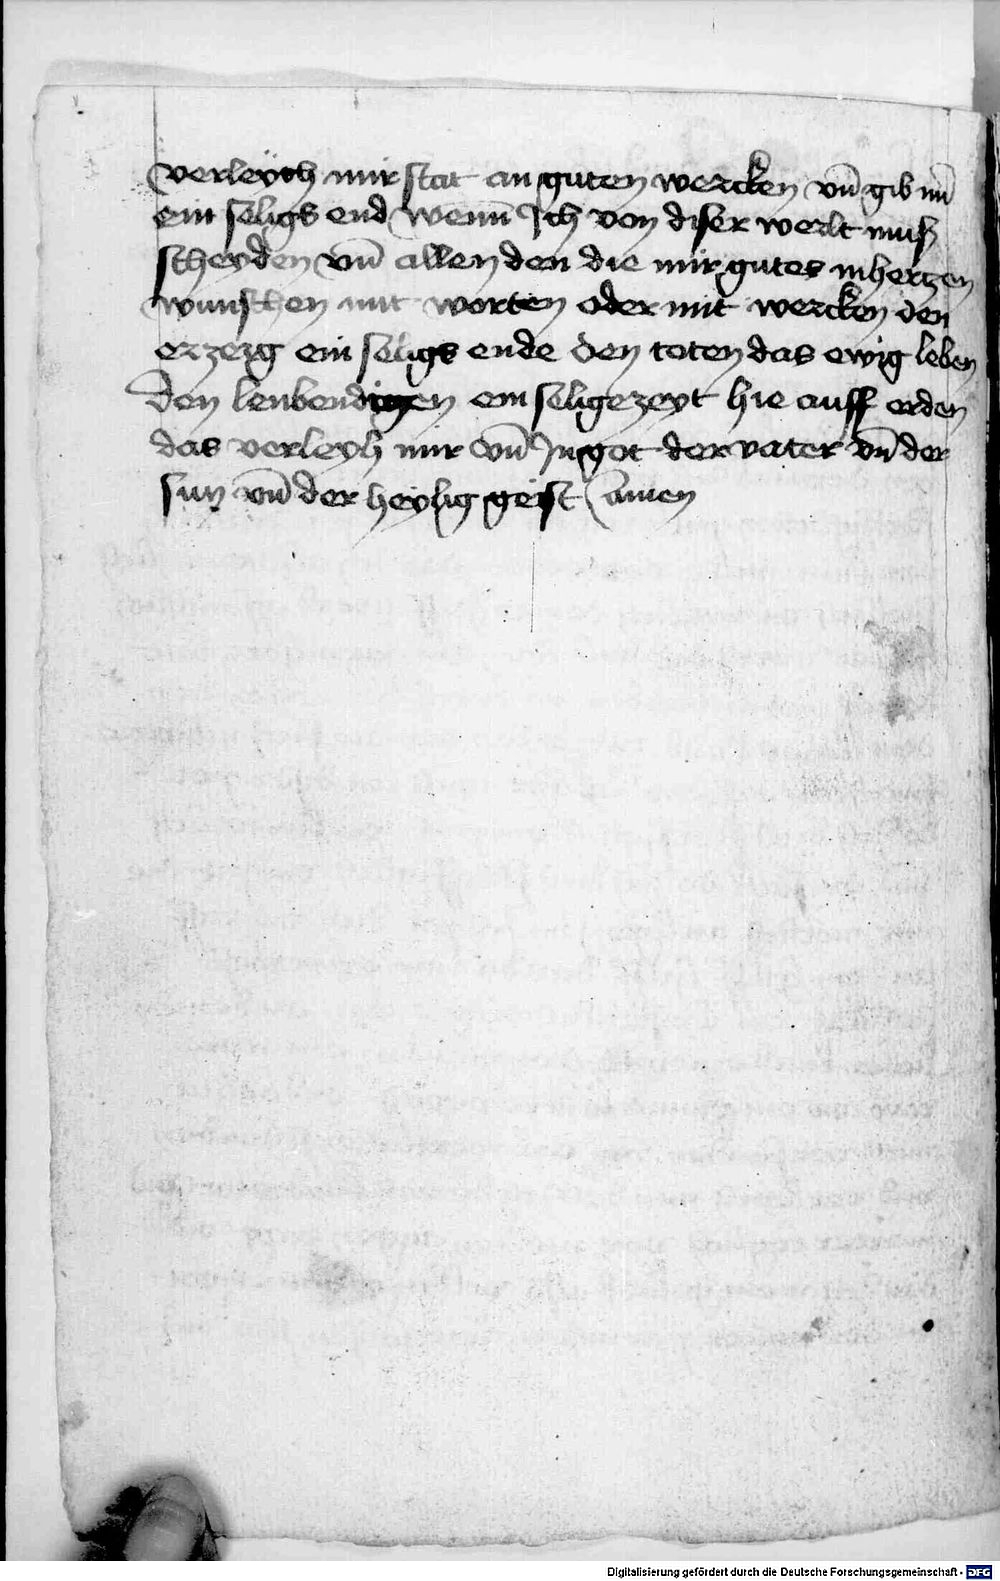 verleych mir stat an guten wercken vn̄ gib mir
ein seligs end wenn̄ Ich von diser werlt muß
scheyden vn̄ allen den die mir gutes in hertzen
wunschen mit worten oder mit wercken den
erzerg ein seligs ende den toten das ewig leben
den lenbendigen ein selige zeyt hie auff erden
das verleyh mir vn̄ In got der vater vn̄ der
sun vn̄ der heylig geist Amen
Digitalisierung gefördert durch die Deutsche Forschungsgemeinschaft - DFG